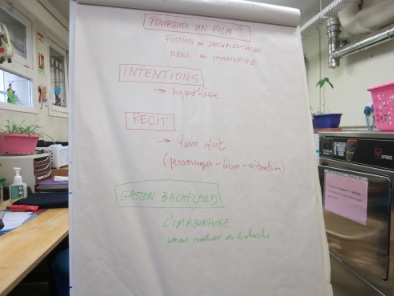 POURQUOI UN FILM ?
FICTION OU DOCUMENTAIRE
REEL OU IMAGINAIRE
INTENTIONS
→ hypothèse
RECIT
→
(personnages - lieux - situation)
GASTON BACHELARD
L'IMAGINAIRE